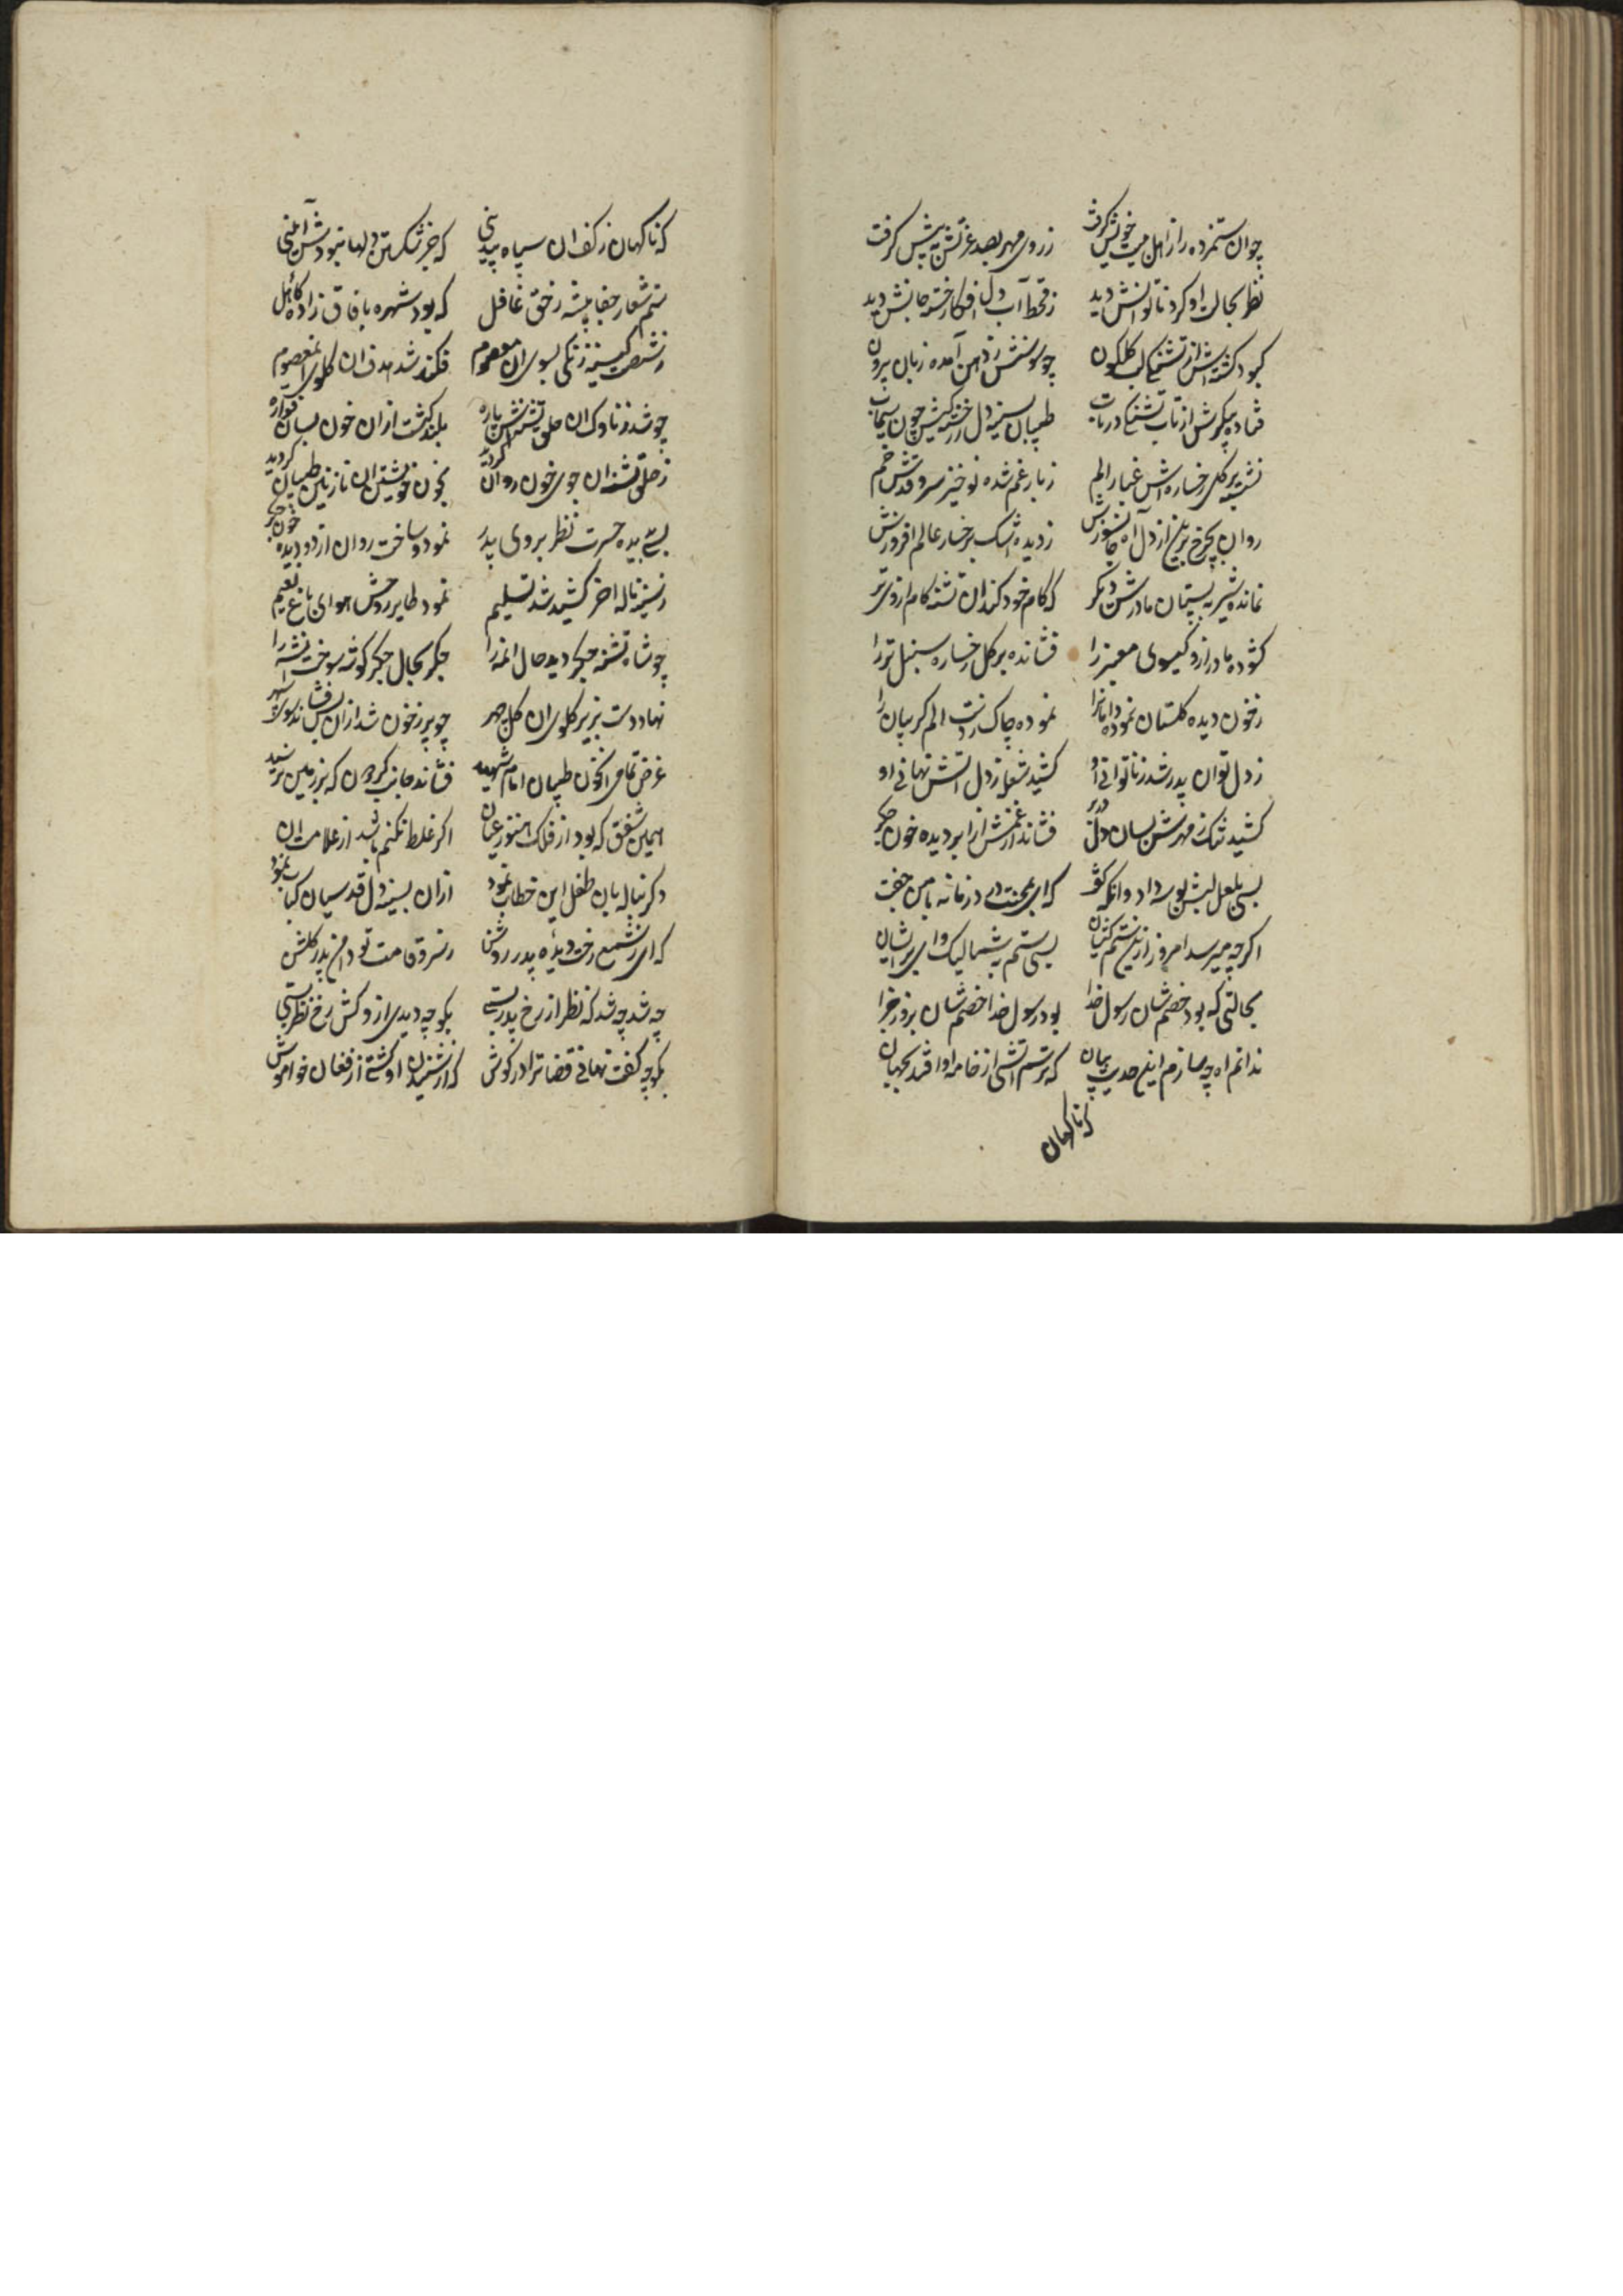 چو ان ستمزده را از اهل بیت خویش گرفت زروی مهر بصد عزتش به پیش گرفت
نظر بحالت او کرد ناتوانش دید ز قحط آب دل افکار خسته جانش دید
کبود گشته اش از تشنگی لب گلگون چو سوسنش ز دهن آمده زبان بیرون
فتاده پیکرش از تاب تشنگی در تاب طپان بسینه دل
نشسته بر گل رخساره اش غبار الم ز بار غم شده نوخیز سرو قدش خم
روان بچرخ برین از دل آه جانسوزش ز دیده اشک بر رخسار عالم افروزش
نمانده شیر به پستان مادرش دیگر که کام خود کند ان تشنه کام ازوی تر
گشوده مادر ازو گیسوی معنبر را فشانده بر گل رخساره سنبل تر را
ز خون دیده گلستان نموده دامانرا نموده چاک ز دست الم گریبان را
ز دل توان پدر شد ز ناتوانی او کشید شعله ز دل آتش نهانی او
کشید تنگ ز مهرش بسان دل در بر فشاند از غمش از ابر دیده خون جگر
بسی بلعل لبش بوسه داد وانگه گفت که ای بمحنت و درد زمانه با من جفت
اگرچه میرسد امروز ازین ستم کیشان بسی ستم به شما لیک وای بر ایشان
بحالتی که بود خصمشان رسول خدا بود رسول خدا خصمشان بروز جزا
ندانم اه چه سازم ازین حدیث بیان که ترسم آتشی از خامه او افتد بجهان
که ناگهان
که ناگهان ز کف ان سیاه پیدینی که جز شکستن دلها نبودش آئینی
ستم شعار جفا پیشه ز حق غافل که بود شهره بافاق زاده کاهل
ز شصت کینه خدنگی بسوی ان معصوم فکند شد هدف ان گلوی ان معصوم
چو شد ز ناوک ان حلق تشنه اش پاره بلند گشت ازان خون بسان فواره
ز حلق تشنه ان جوی خون روان گردید بخون خویشتن ان نازنین طپان گردید
بسی بدیده حسرت نظر بروی پدر نمود و ساخت روان از دو دیده خون جگر
ز سینه ناله اخر کشید شد تسلیم نمود طایر روحش هوای باغ نعیم
چو شاه تشنه جگر دید حال انمه را جگر بحال جگر گوشه سوخت انشه را
نهاد دست بزیر گلوی ان گل چهر چو پر ز خون شد ازان پس فشاند سوی سپهر
غرض تمامی انخون طپان امام شهید فشاند جانب گردون که بر زمین نرسید
همین شفق که بود از فلک هنوز عیان اگر غلط نکنم باشد از علامت ان
دگر بناله بان طفل این خطاب نمود ازان بسینه دل قدسیان کباب نمود
که ای ز شمع رخت دیده پدر روشن ز سرو قامت تو دامن پدر گلشن
چه شد چه شد که نظر از رخ پدر بستی بگو چه دیدی ازو کش ز رخ نظر بستی
بگو چه گفت نهانی قضا ترا در گوش که از شنیدن او گشتی از فغان خواموش